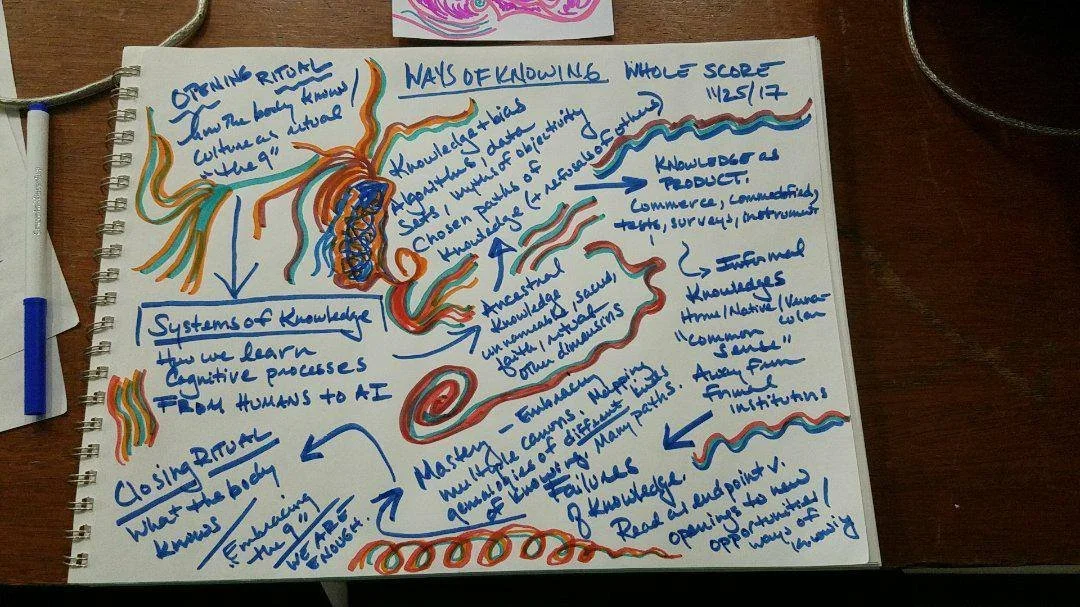 WAYS OF KNOWING WHOLE SCORE
11/25/17
OPENING RITUAL
how the body knows/
culture as ritual
"the 9"
Systems of Knowledge
How we learn
Cognitive processes
FROM HUMANS TO AI
Ancestral
Knowledge
unnameable, sacred,
faith, ritual
other dimensions
Knowledge + bias
Algorithms, data
sets, myths of objectivity
Chosen paths of
Knowledge (+ refusals of others)
KNOWLEDGE AS
PRODUCT.
Commerce, commodified,
tests, surveys, instrument
Informal
Knowledges
Home/Native/Verna-
cular
"common
sense"
Away from
formal
institutions
Failures
of Knowledge.
Read as endpoint v.
openings to new
opportunities/
ways of
knowing
Mastery – Embracing
multiple canons. Mapping
genealogies of different kinds
of knowing. Many paths.
Closing RITUAL
What the body
knows
"Embracing
the 9"
WE ARE
ENOUGH.